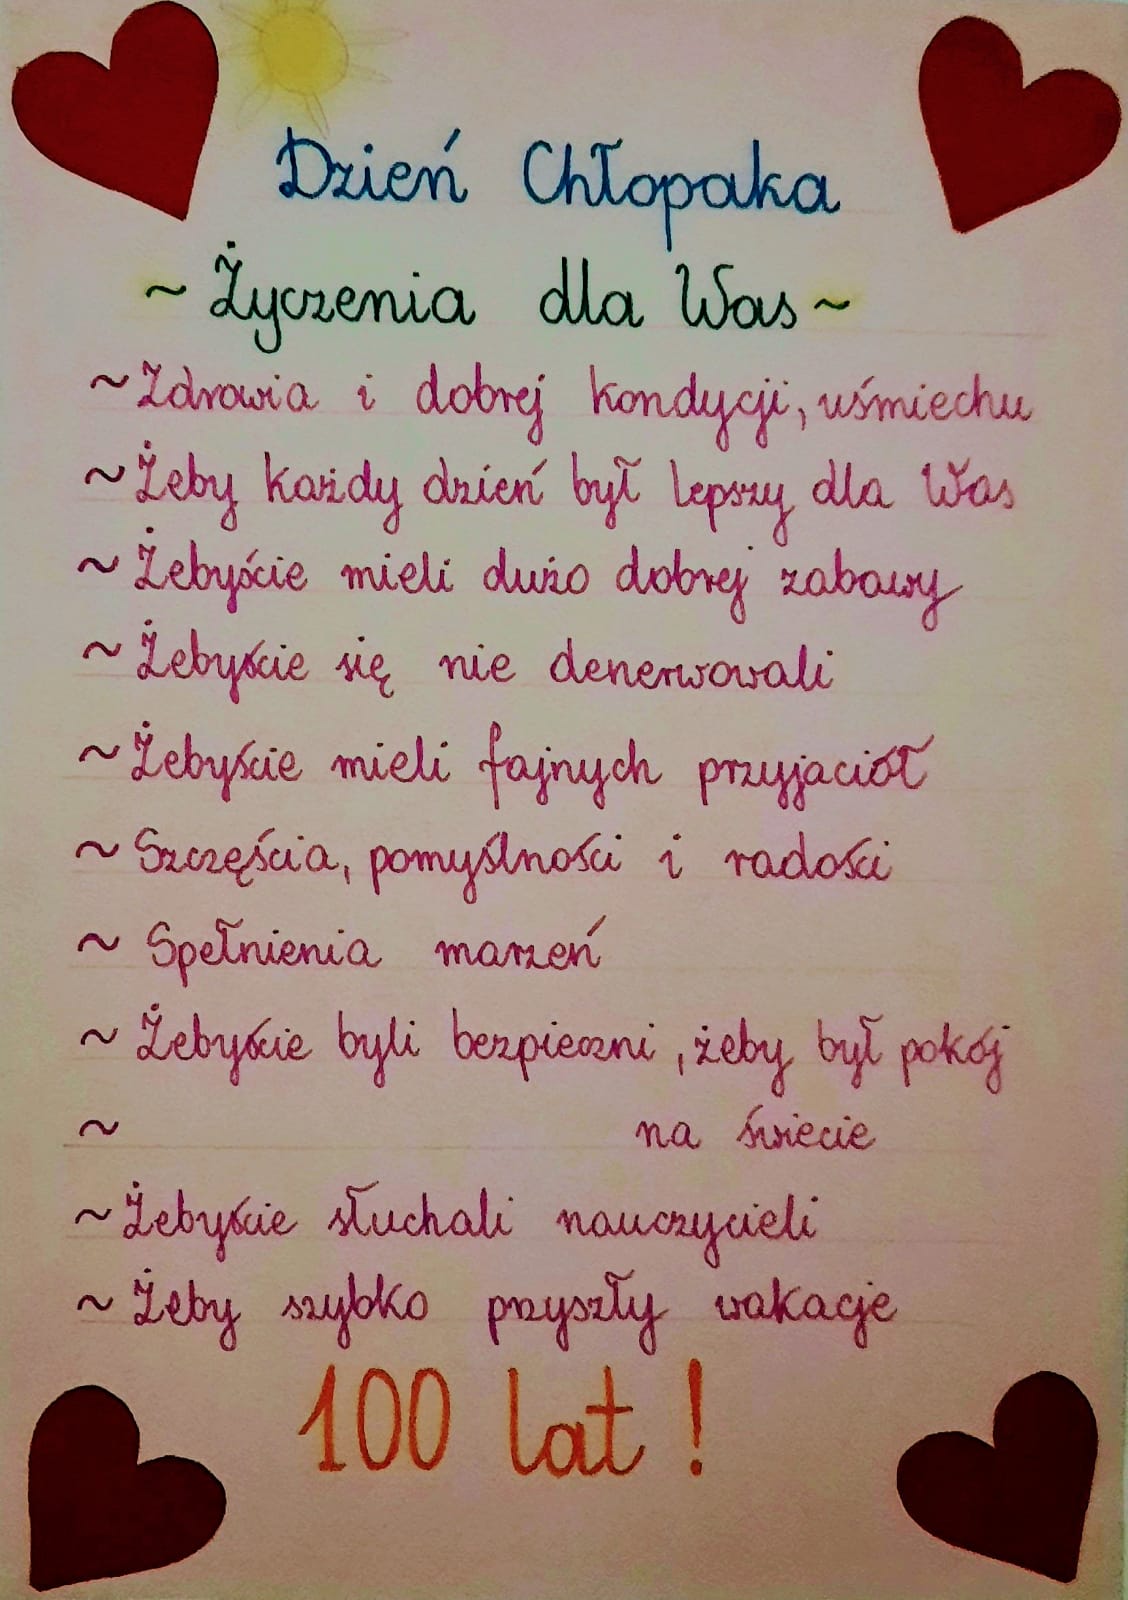 Dzień Chłopaka
~ Życzenia dla Was ~
~ Zdrowia i dobrej kondycji, uśmiechu
~ Żeby każdy dzień był lepszy dla Was
~ Żebyście mieli dużo dobrej zabawy
~ Żebyście się nie denerwowali
~ Żebyście mieli fajnych przyjaciół
~ Szczęścia, pomyślności i radości
~ Spełnienia marzeń
~ Żebyście byli bezpieczni, żeby był pokój
~ na świecie
~ Żebyście słuchali nauczycieli
~ Żeby szybko przyszły wakacje
100 lat!